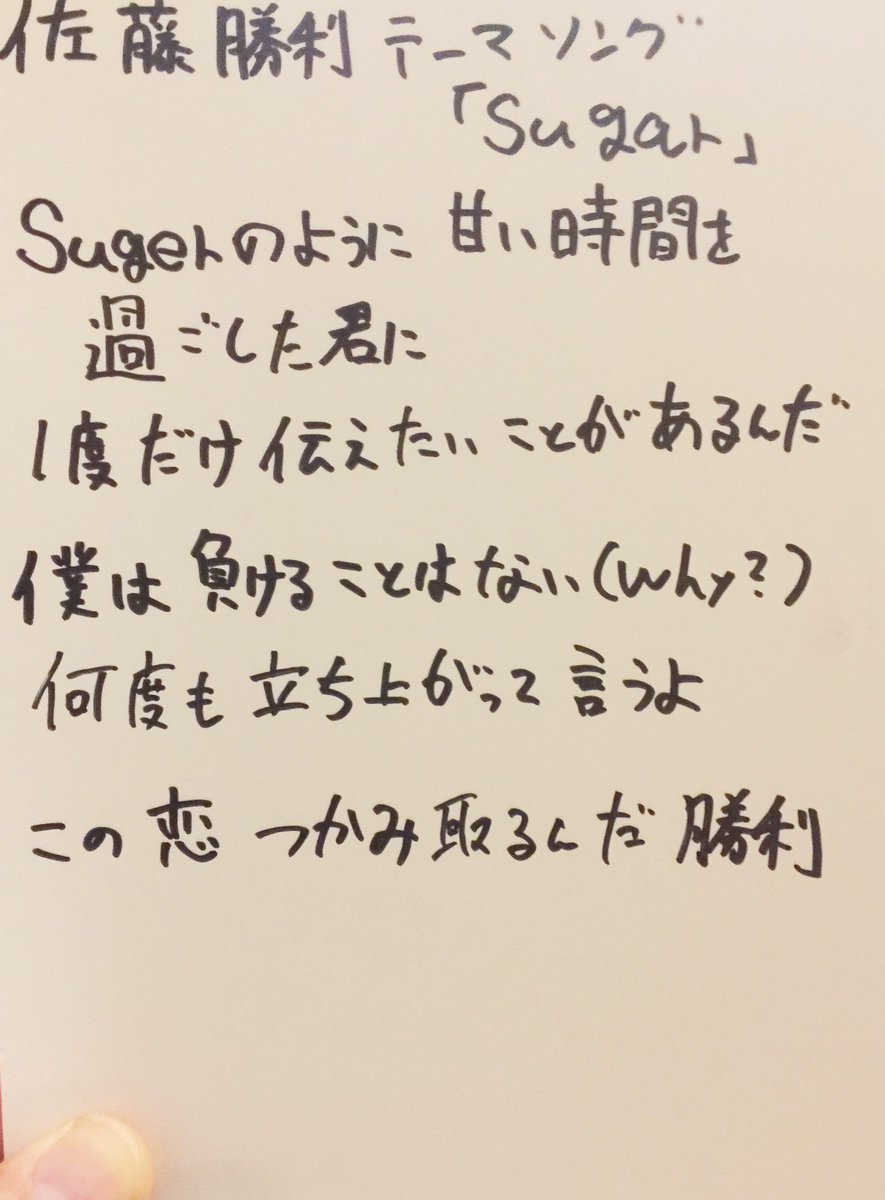 佐藤勝利テーマソング
「Sugar」
Sugerのように 甘い時間を
過ごした君に
1度だけ伝えたいことがあるんだ
僕は負けることはない(why?)
何度も立ち上がって言うよ
この恋 つかみ取るんだ 勝利